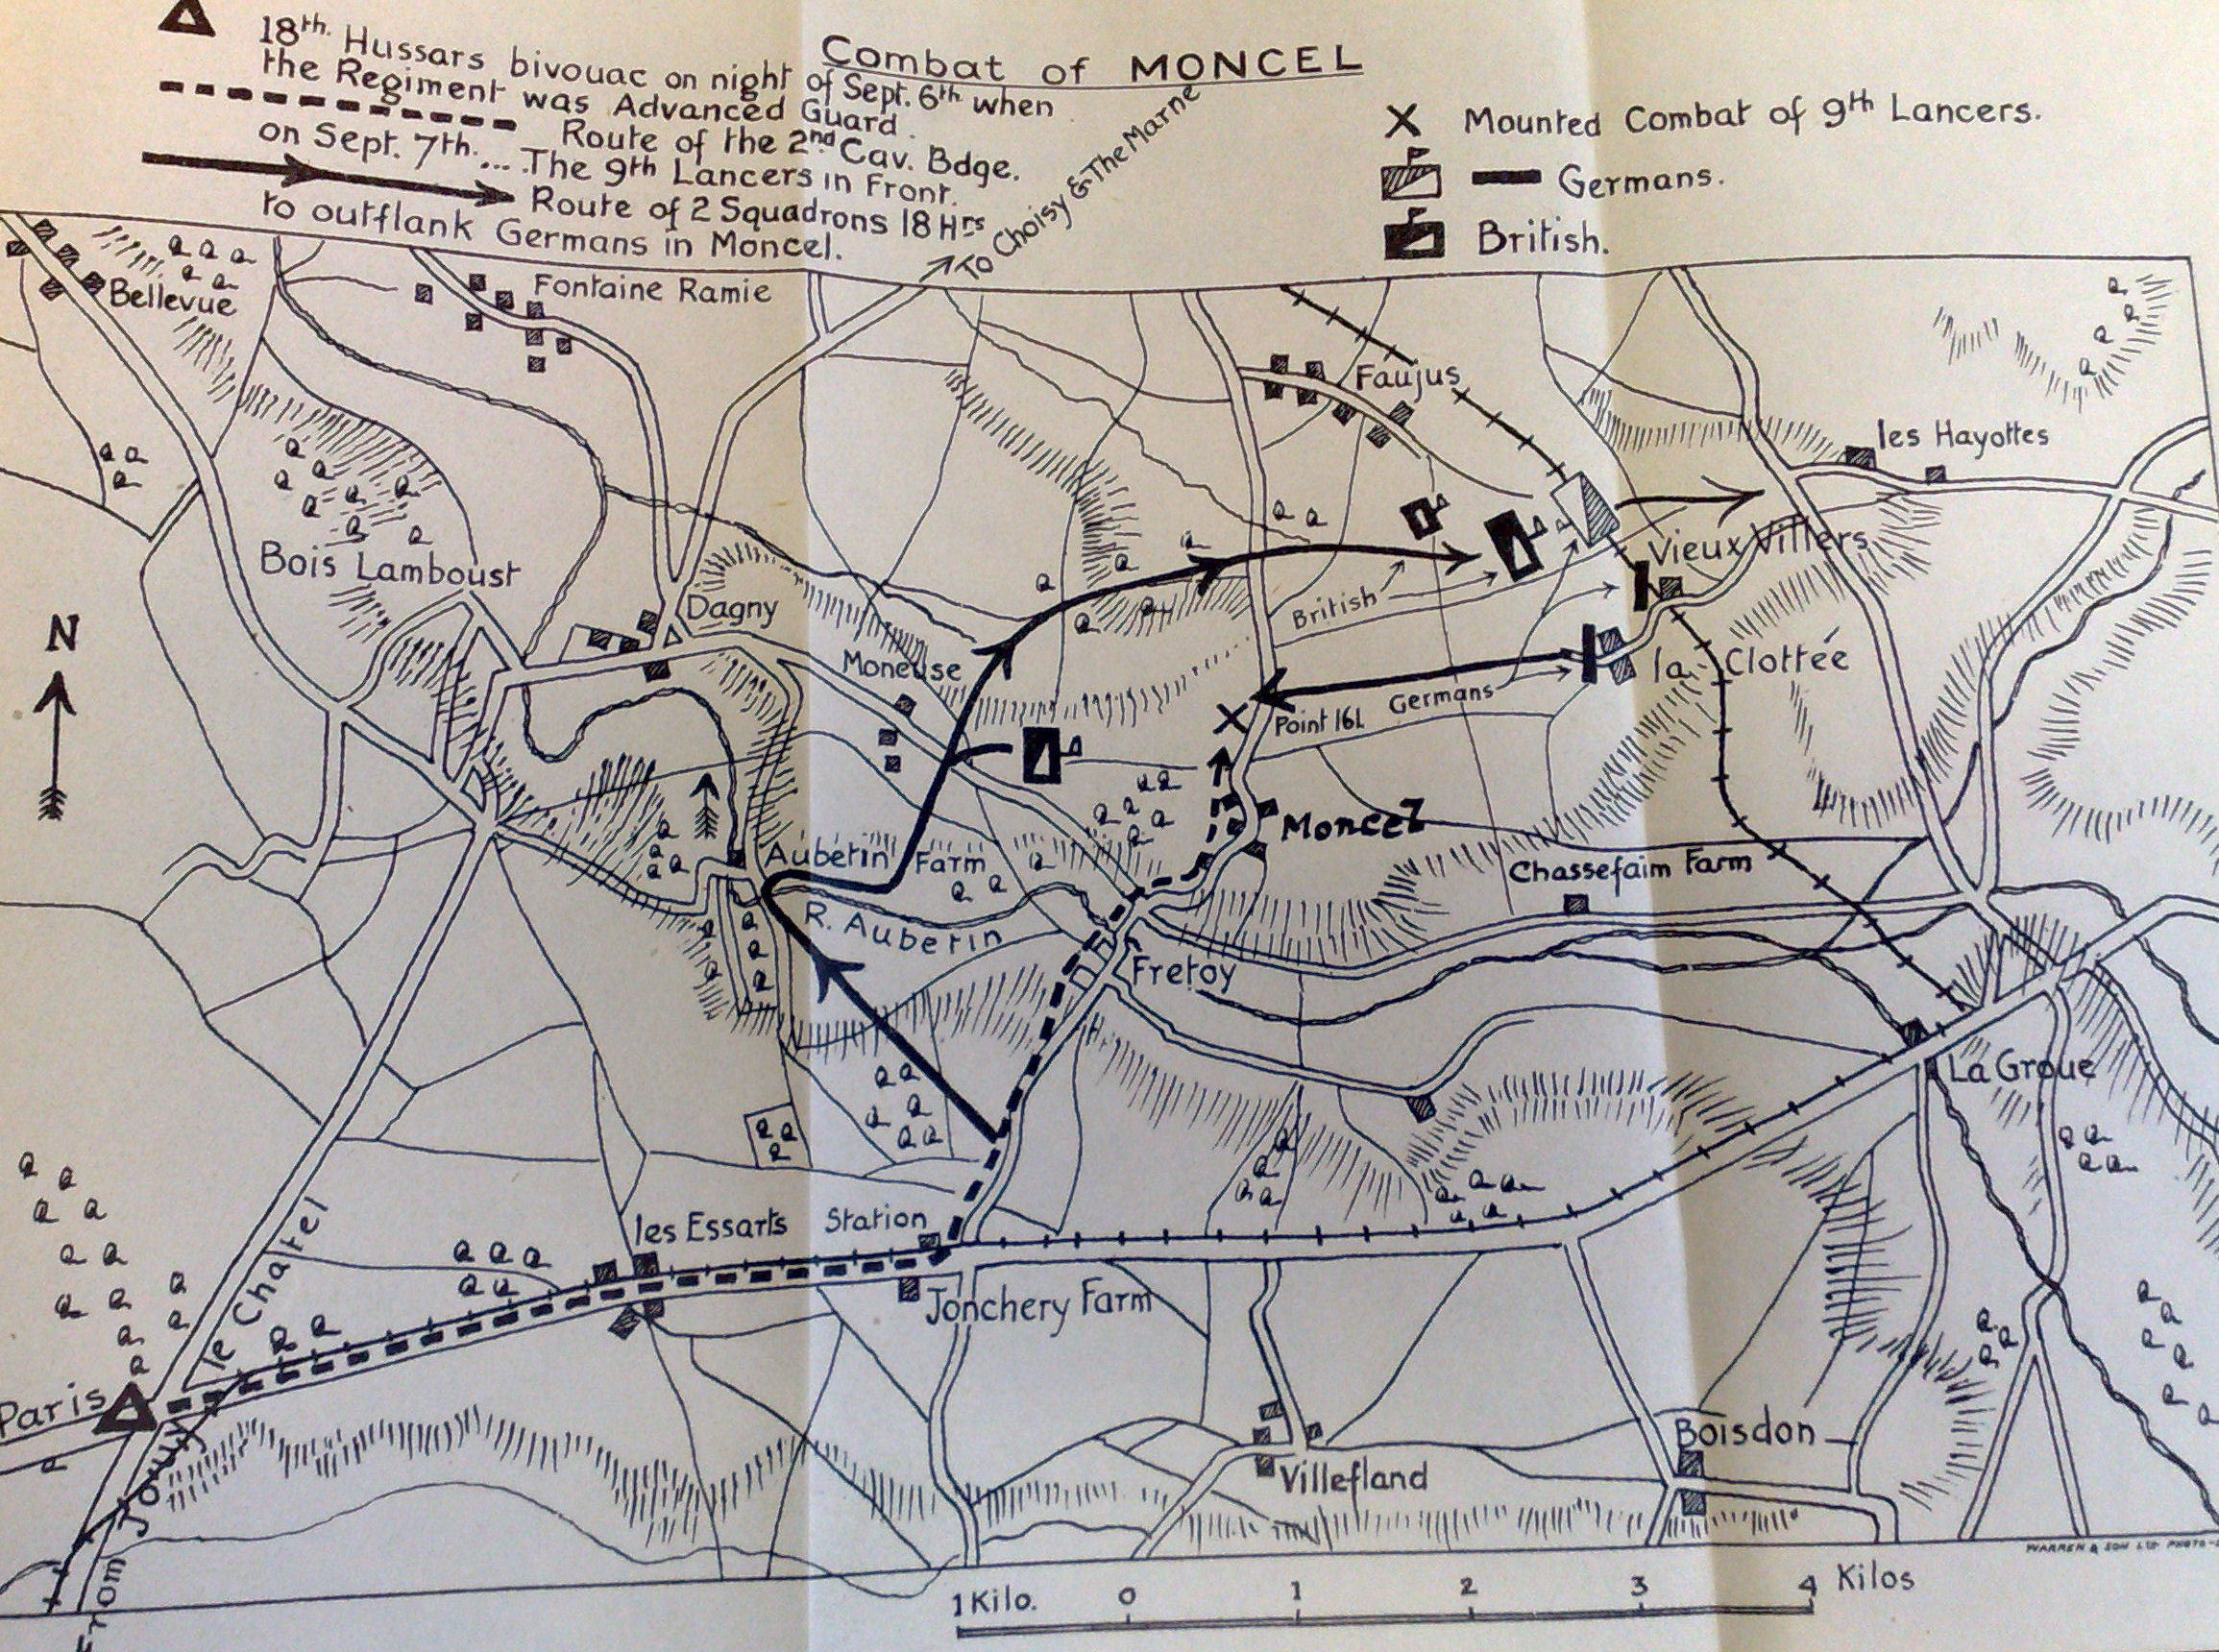 Combat of MONCEL
18th. Hussars bivouac on night of Sept. 6th when
the Regiment was Advanced Guard.
Route of the 2nd Cav. Bdge.
on Sept. 7th. ... The 9th Lancers in Front.
Route of 2 Squadrons 18 Hrs
to outflank Germans in Moncel.
Mounted Combat of 9th Lancers.
Germans.
British.
To Choisy & The Marne
Bellevue
Fontaine Ramie
Faujus
les Hayottes
Bois Lamboust
Vieux Villers
N
Dagny
British
Moneuse
la Clottée
Germans
Point 161
Moncel
Aubetin Farm
Chassefaim Farm
R. Aubetin
Fretoy
La Groue
les Essarts
Station
Jonchery Farm
le Chatel
Paris
From Jouy
Boisdon
Villefland
1 Kilo. 0 1 2 3 4 Kilos
WARREN & SON LTD PHOTO-